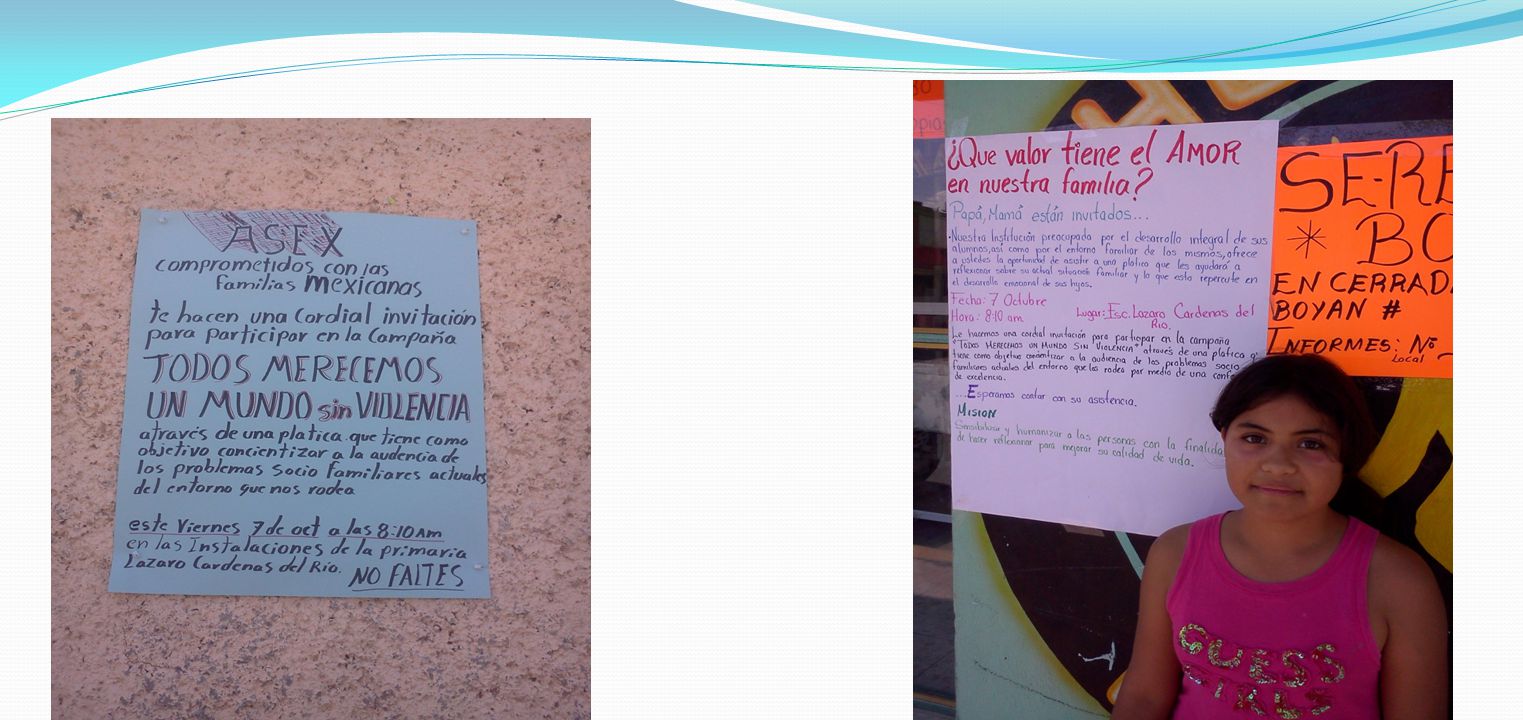 ASEX
comprometidos con las
familias mexicanas
te hacen una Cordial invitación
para participar en la Campaña
TODOS MERECEMOS
UN MUNDO sin VIOLENCIA
através de una platica que tiene como
objetivo concientizar a la audencia de
los problemas socio familiares actuales
del entorno que nos rodea
este Viernes 7 de oct a las 8:10 AM
en las Instalaciones de la primaria
Lazaro Cardenas del Rio.
NO FALTES
¿Que valor tiene el AMOR
en nuestra familia?
Papá, Mamá están invitados...
Nuestra Institución preocupada por el desarrollo integral de sus
alumnos, así como por el entorno familiar de los mismos, ofrece
a ustedes la oportunidad de asistir a una platica que les ayudará a
reflexionar sobre su actual situación familiar y lo que esta repercute en
el desarrollo emocional de sus hijos.
Fecha: 7 Octubre
Hora: 8:10 am
Lugar: Esc. Lazaro Cardenas del
Rio.
Le hacemos una cordial invitación para participar en la campaña
"TODOS MERECEMOS UN MUNDO SIN VIOLENCIA" através de una platica q'
tiene como objetivo concientizar a la audiencia de los problemas socio
familiares actuales del entorno que les rodea por medio de una conf
de excelencia.
...Esperamos contar con su asistencia.
MISION
Sensibilizar y humanizar a las personas con la finalida
de hacer reflexionar para mejorar su calidad de vida.
SE-RE
* BO
EN CERRADA
BOYAN #
INFORMES: No
Local
GUESS
GIRLS